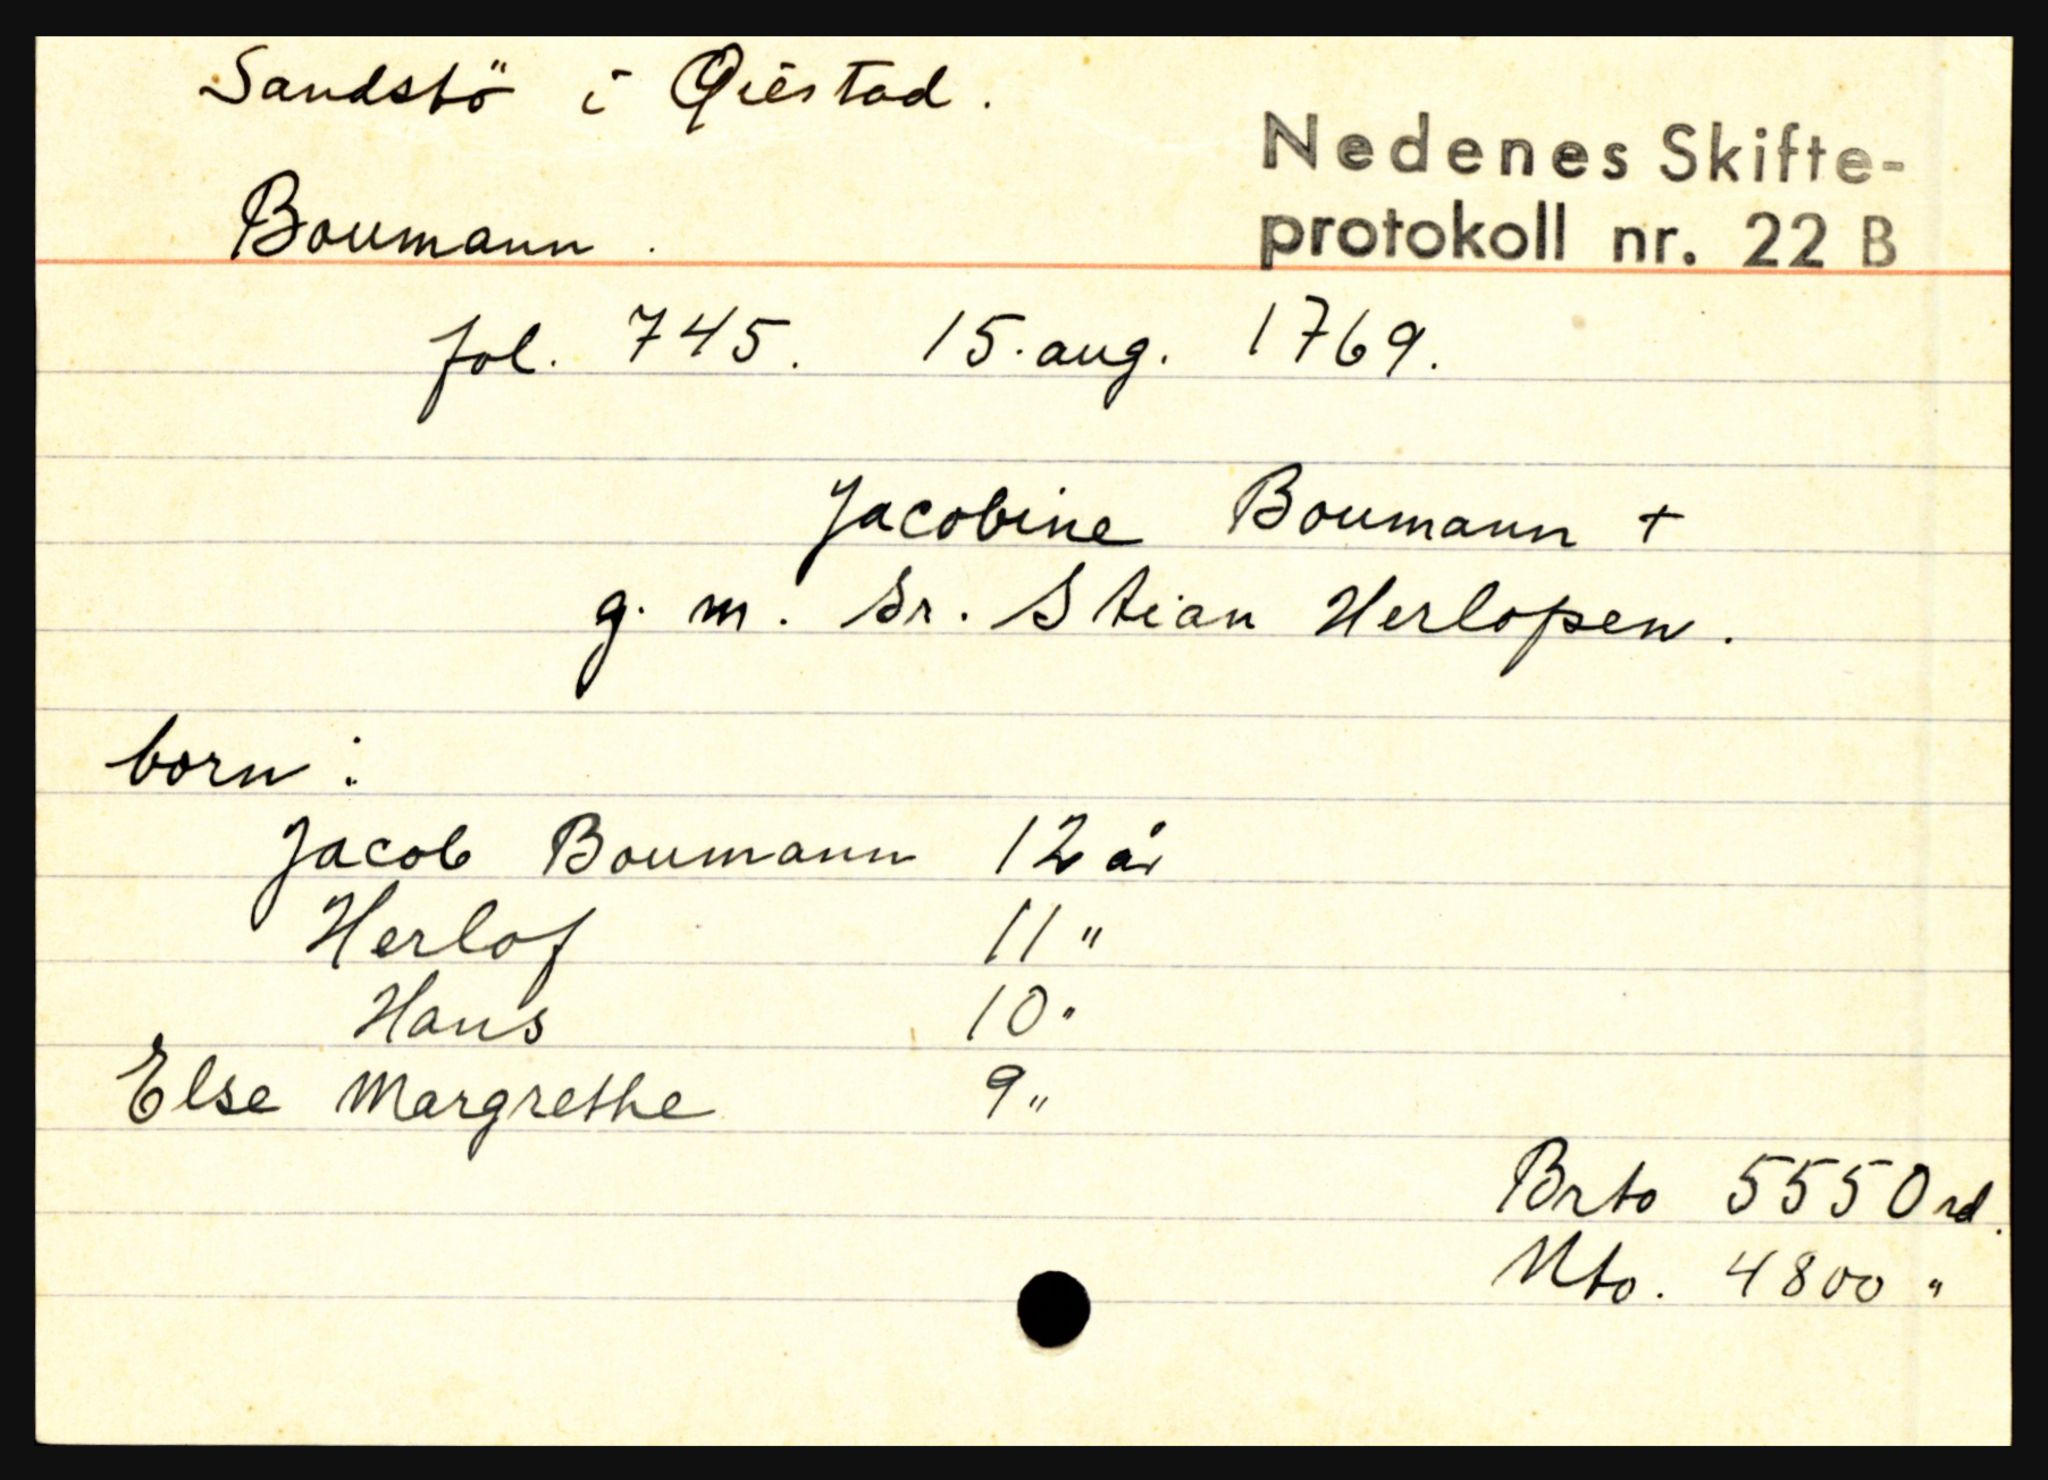 Sandstö i Øiestad.
Nedenes Skifte-
protokoll nr. 22 B
Boumann.
fol. 745. 15. aug. 1769.
Jacobine Boumann +
g. m. Sr. Stian Herlopsen.
born:
Jacob Boumann 12 år
Herlof 11 "
Hans 10 "
Else Margrethe 9 "
Brto 5550 rd.
Nto. 4800 "